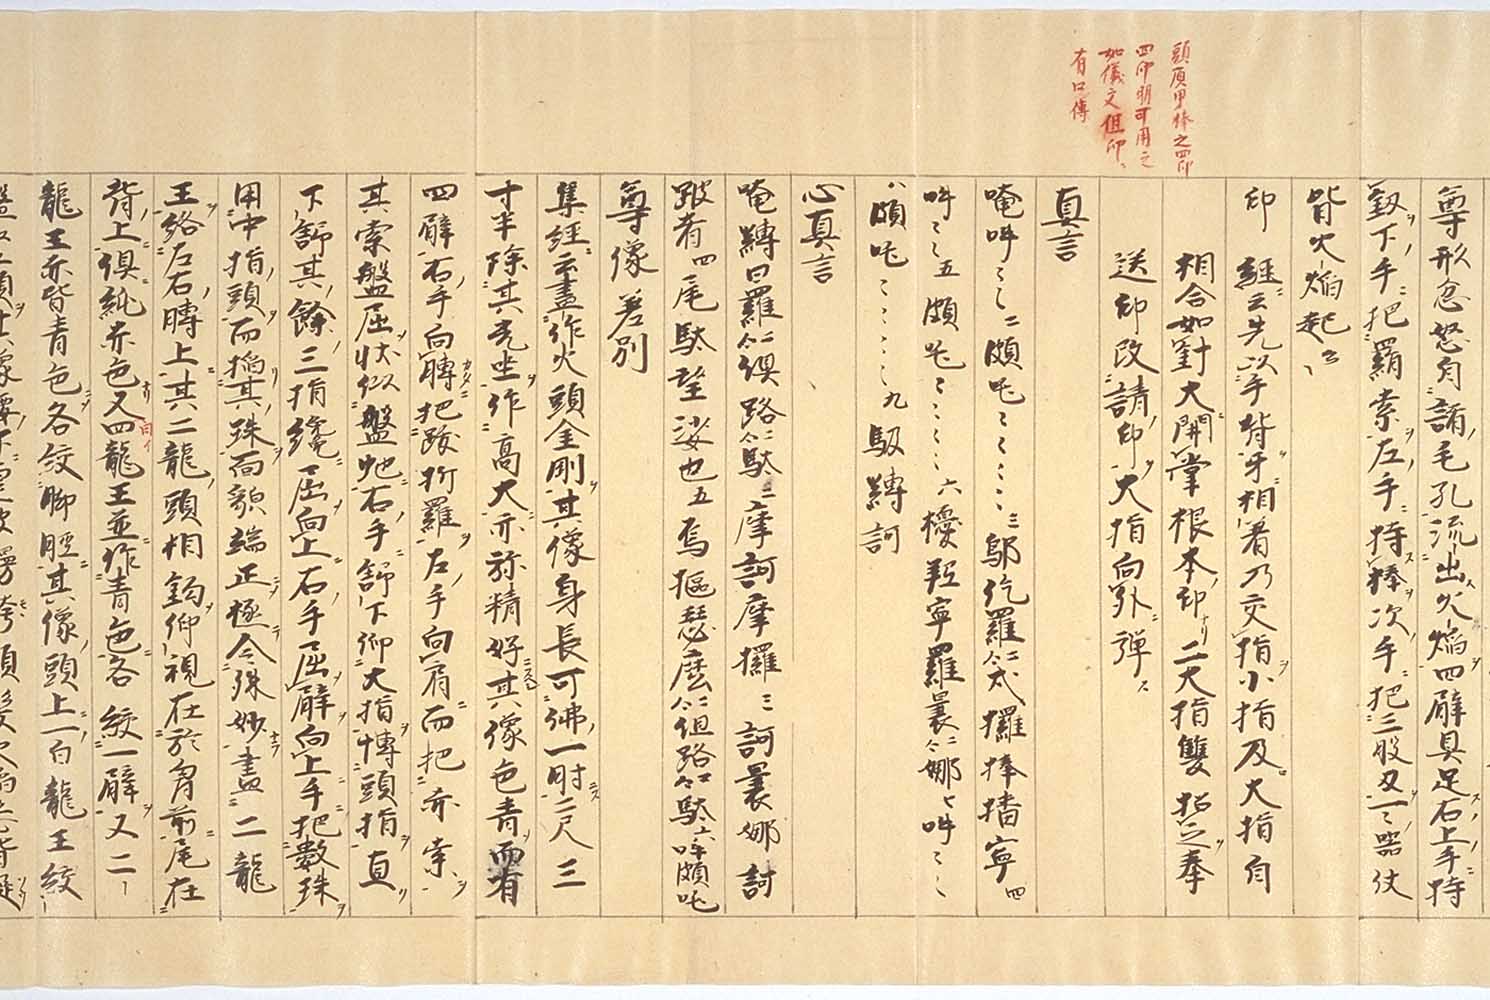 頭頂甲棒之四印
四印明可用之
如儀文但印〻
有口傳
尊形忿怒身諸毛孔流出火焔四臂具足右上手持
釼下手把羂索左手持棒次手把三股叉一一器仗
皆火焔起云々
印 經云先以手背牙相着乃交指小指及大指自
相合如對大開掌根本印二大指雙招之奉
送印改請印大指向外弾
真言
唵吽〻〻二頗吒〻〻〻〻三鄔仡羅二合戍攞捧播寧四
吽〻〻五頗吒〻〻〻〻〻六擾羝寧羅曩二合娜七吽〻〻
八頗吒〻〻〻〻〻九馺縛訶
心真言
唵縛日羅二合倶路二合駄二摩訶摩攞三訶曩娜訶
跛者四尾駄望娑也五烏摳瑟麼二合倶路二合駄六吽頗吒
尊像差別
集經云畫作火頭金剛其像身長可佛一肘二尺三
寸半除其光坐作高大亦弥精好其像色青而有
四臂右手向髆把跋折羅左手向肩而把赤索
其索盤屈状似盤虵右手舒下仰大指博頭指直
下舒其餘三指纔屈向上右手屈臂向上手把數珠
用中指頭而搯其珠面貌端正極令殊妙畫二龍
王絡左右髆上其二龍頭相鈎仰視在於胷前尾在
背上倶純赤色又四龍王並作青色各絞一臂又二
龍王亦皆青色各絞脚脛其像頭上一白龍王絞